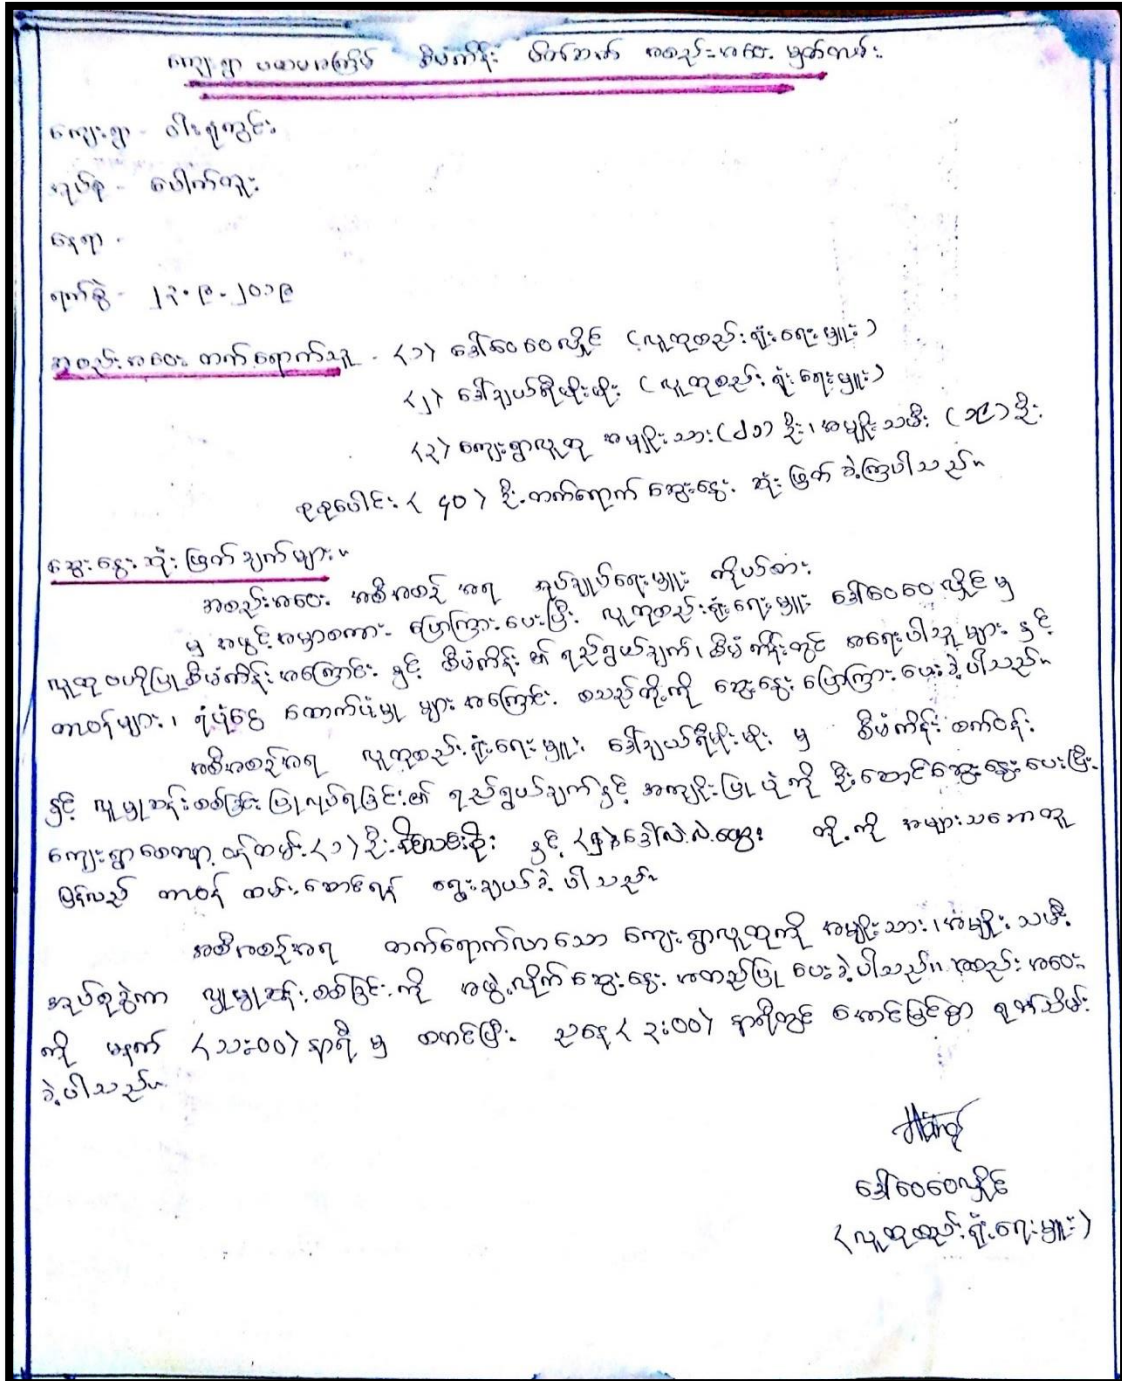 ကျေးရွာ ပထမအကြိမ် စီမံကိန်း မိတ်ဆက် အစည်းအဝေး မှတ်တမ်း
ကျေးရွာ - ဝါးရုံကွင်း
အုပ်စု - ပေါက်တူး
နေရာ -
ရက်စွဲ - ၂၃.၉.၂၀၁၉
အစည်းအဝေး တက်ရောက်သူ - <၁> ဒေါ်ဝေဝေလှိုင် (လူထုစည်းရုံးရေးမှူး)
<၂> ဒေါ်ချယ်ရီမိုးမိုး (လူထုစည်းရုံးရေးမှူး)
<၃> ကျေးရွာလူထု အမျိုးသား (၂၁) ဦး၊ အမျိုးသမီး (၁၉) ဦး
စုစုပေါင်း < ၄၀ > ဦး တက်ရောက် ဆွေးနွေး ဆုံးဖြတ် ခဲ့ကြပါသည်။
ဆွေးနွေး ဆုံးဖြတ် ချက်များ။
အစည်းအဝေး အစီအစဉ် အရ အုပ်ချုပ်ရေးမှူး ကိုယ်စား
မှ အဖွင့်အမှာစကား ပြောကြားပေးပြီး လူထုစည်းရုံးရေးမှူး ဒေါ်ဝေဝေလှိုင် မှ
လူထု ဗဟိုပြုစီမံကိန်း အကြောင်း နှင့် စီမံကိန်း ၏ ရည်ရွယ်ချက်၊ စီမံကိန်းတွင် အရေးပါသူများ နှင့်
တာဝန်များ၊ ရံပုံငွေ ထောက်ပံ့မှု များ အကြောင်း စသည်တို့ကို ဆွေးနွေး ပြောကြားပေးခဲ့ပါသည်။
အစီအစဉ်အရ လူထုစည်းရုံးရေးမှူး ဒေါ်ချယ်ရီမိုးမိုး မှ စီမံကိန်း စက်ဝန်း
နှင့် လူမှုဆန်းစစ်ခြင်း ပြုလုပ်ရခြင်း၏ ရည်ရွယ်ချက်နှင့် အကျိုးပြုပုံကို ဦးဆောင်ဆွေးနွေးပေးပြီး
ကျေးရွာစေတနာ့ ဝန်ထမ်း <၁> ဦး နှင့် <၂> ဒေါ်လဲ့လဲ့ထွေး တို့ကို အများသဘောတူ
မြန်လည် တာဝန် ထမ်းဆောင်ရန် ရွေးချယ်ခဲ့ ပါသည်။
အစီအစဉ်အရ တက်ရောက်လာသော ကျေးရွာလူထုကို အမျိုးသား၊ အမျိုးသမီး
အုပ်စုခွဲကာ လူမှုဆန်းစစ်ခြင်းကို အဖွဲ့လိုက် ဆွေးနွေး အတည်ပြု ပေးခဲ့ပါသည်။ အစည်းအဝေး
ကို မနက် <၁၁:၀၀> နာရီ မှ စတင်ပြီး ညနေ < ၃:၀၀> နာရီတွင် အောင်မြင်စွာ ရုတ်သိမ်း
ခဲ့ပါသည်။
ဒေါ်ဝေဝေလှိုင်
<လူထုစည်းရုံးရေးမှူး>